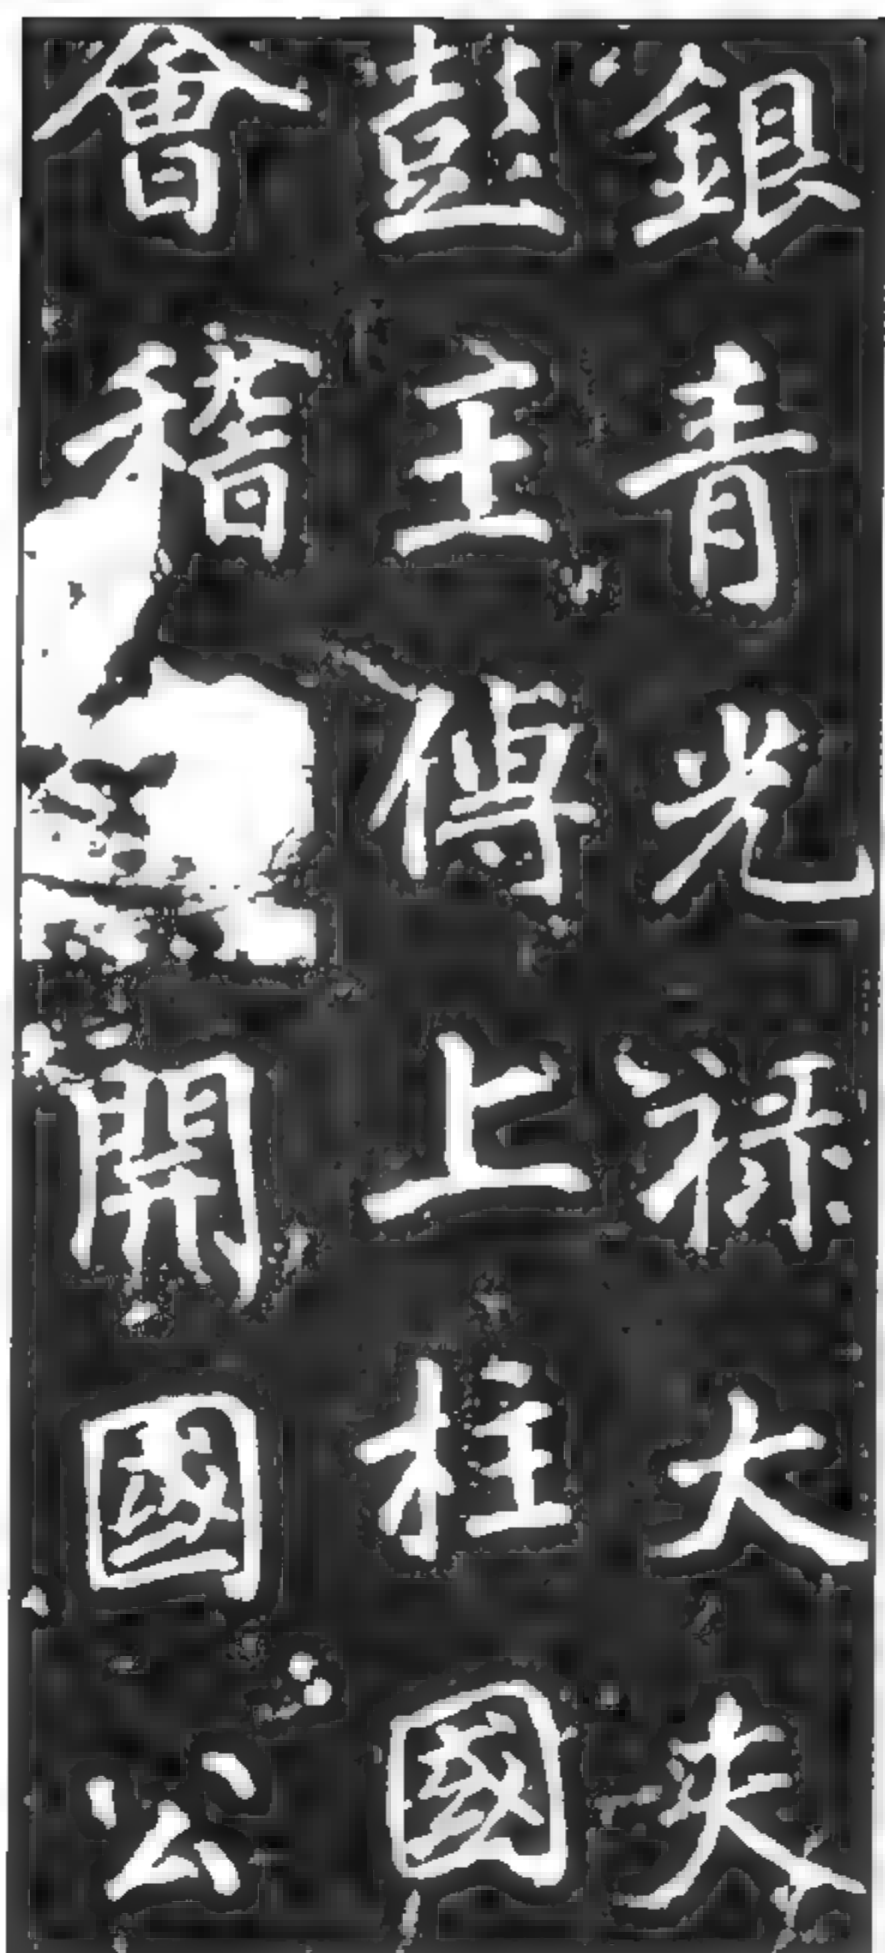 銀青光祿大夫
彭王傅上柱國
會稽開國公